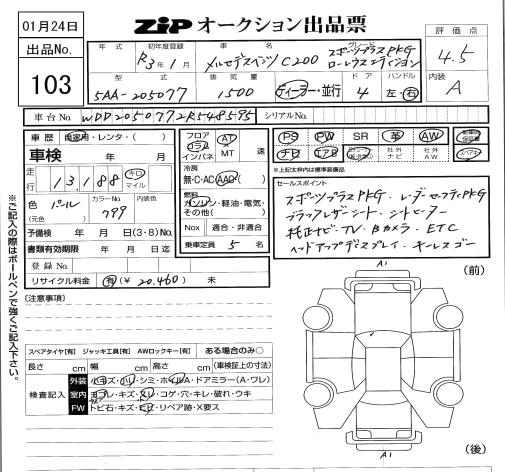 01月24日
ZIP オークション出品票
評価点
4.5
出品No.
103
年式
初年度登録
R3年1月
車名
メルセデスベンツ C200
グレード
スポーツプラスPKG
ローレウスエディション
型式
5AA-205077
排気量
1500
ディーラー・並行
ドア
4
ハンドル
左・右
内装
A
車台No.
WDD2050772R548595
シリアルNo.
車歴
自家用・レンタ・( )
車検 年 月
走行
13,188
キロ
マイル
色
パール
(元色)
カラーNo.
799
内装色
予備検 年 月 日(3・8)No.
書類有効期限 年 月 日迄
登録No.
リサイクル料金 有(¥20,460) 未
フロア
コラム
インパネ
AT
MT
速
冷房
無・C・AC・AAC・( )
燃料
ガソリン・軽油・電気・
その他( )
Nox 適合・非適合
乗車定員 5 名
PS PW SR 革 AW
ナビ エアB
社外ナビ
社外AW
※上記太枠内は標準装備品
セールスポイント
スポーツプラスPKG・レーダーセーフティPKG
ブラックレザーシート・シートヒーター
純正ナビ・TV・Bカメラ・ETC
ヘッドアップディスプレイ・キーレスゴー
※ご記入の際はボールペンで強くご記入下さい。
[注意事項]
A1
(前)
スペアタイヤ[有] ジャッキ工具[有] AWロックキー[有] ある場合のみ○
長さ cm 幅 cm 高さ cm (車検証上の寸法)
検査記入
外装
室内
FW
トビ石・キズ・ヒビ・リペア跡・X要ス
A1
(後)